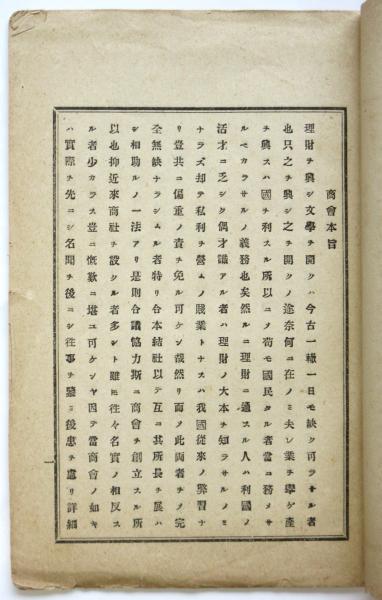 商會本旨
理財ヲ興シ文學ヲ開クハ今古一轍一日モ缺ク可ラサル者
也只之ヲ興シ之ヲ開クノ途奈何ニ在ノミ夫レ業ヲ擧ケ產
ヲ興スハ國ヲ利スル所以ニノ苟モ國民タル者當ニ務メサ
ルヘカラサルノ義務也矣然ルニ理財ニ通スル人ハ利國ノ
活才ニ乏シク偶才識アル者ハ理財ノ大本ヲ知ラサルノミ
ナラズ却テ私利ヲ營ムノ賤業トナスハ我國從來ノ弊習ナ
リ豈共ニ偏重ノ責ヲ免ル可ケン哉然リ而ノ此兩者ヲノ完
全無缺ナラシムル者特リ合本結社以テ互ニ其所長ヲ展ハ
シ相助ルノ一法アリ是則合議協力斯ニ商會ヲ創立スル所
以也抑近來商社ヲ設クル者多シト雖𪜈往々名實ノ相反ス
ル者少カラス豈ニ慨歎ニ堪ユ可ケンヤ因テ當商會ノ如キ
ハ實際ヲ先ニシ名聞ヲ後ニシ往事ヲ鑒ミ後患ヲ慮リ詳細
一